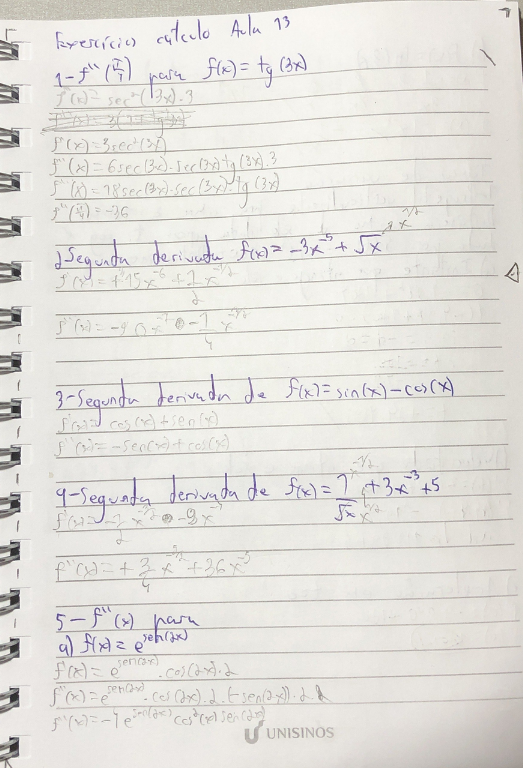 Exercícios cálculo Aula 13
1-f''(π/4) para f(x)=tg(3x)
f'(x)=sec²(3x).3
f'(x)=3sec²(3x)
f''(x)=6sec(3x).sec(3x)tg(3x).3
f''(x)=18sec(3x).sec(3x).tg(3x)
f''(π/4)=-36
2-Segunda derivada f(x)=-3x⁻⁵+√x → x^1/2
f'(x)=+15x⁻⁶+1/2 x^-1/2
f''(x)=-90x⁻⁷-1/4 x^-3/2
3-Segunda derivada de f(x)=sin(x)-cos(x)
f'(x)=cos(x)+sen(x)
f''(x)=-sen(x)+cos(x)
4-Segunda derivada de f(x)=1/√x+3x⁻³+5
f'(x)=-1/2 x^-3/2-9x
f''(x)=+3/4 x+36x⁻⁵
5-f''(x) para
a) f(x)=e^sen(2x)
f'(x)=e^sen(2x).cos(2x).2
f''(x)=e^sen(2x).cos(2x).2.(-sen(2x)).2.2
f''(x)=-4e^sen(2x)cos²(x)sen(2x)
UNISINOS